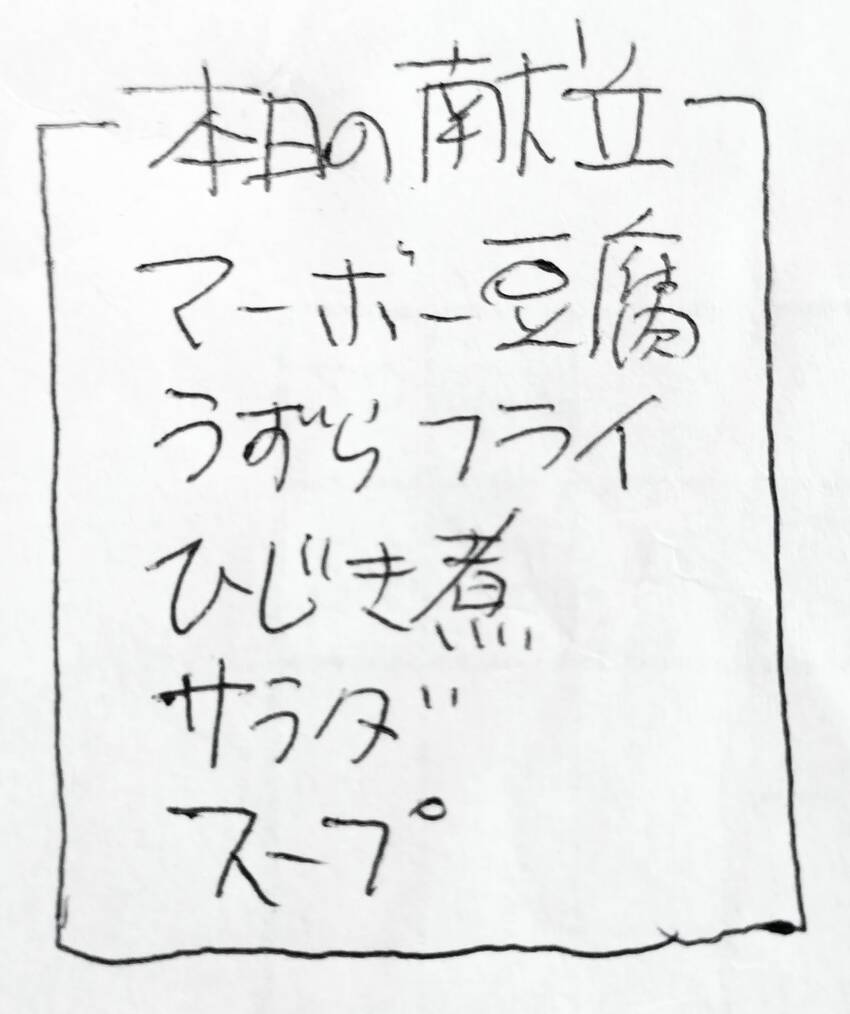 本日の献立
マーボー豆腐
うずらフライ
ひじき煮
サラダ
スープ